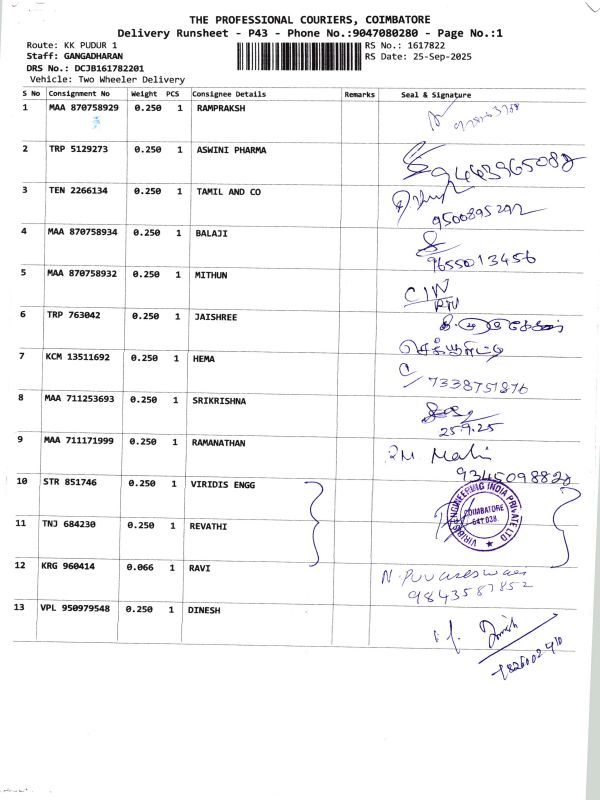 THE PROFESSIONAL COURIERS, COIMBATORE
Delivery Runsheet - P43 - Phone No.:9047080280 - Page No.:1
Route: KK PUDUR 1 RS No.: 1617822
Staff: GANGADHARAN RS Date: 25-Sep-2025
DRS No.: DCJB161782201
Vehicle: Two Wheeler Delivery
S No Consignment No Weight PCS Consignee Details Remarks Seal & Signature
1 MAA 870758929 0.250 1 RAMPRAKSH
2 TRP 5129273 0.250 1 ASWINI PHARMA
9443965088
3 TEN 2266134 0.250 1 TAMIL AND CO
9500895292
4 MAA 870758934 0.250 1 BALAJI
9655013456
5 MAA 870758932 0.250 1 MITHUN
6 TRP 763042 0.250 1 JAISHREE
7 KCM 13511692 0.250 1 HEMA
செக்யூரிட்டி
7338751876
8 MAA 711253693 0.250 1 SRIKRISHNA
25.9.25
9 MAA 711171999 0.250 1 RAMANATHAN
9345098828
10 STR 851746 0.250 1 VIRIDIS ENGG
VIRIDIS ENGINEERING INDIA PRIVATE LTD
COIMBATORE
641 038
11 TNJ 684230 0.250 1 REVATHI
12 KRG 960414 0.066 1 RAVI
N. Puvaneswari
9843587852
13 VPL 950979548 0.250 1 DINESH
Dinesh